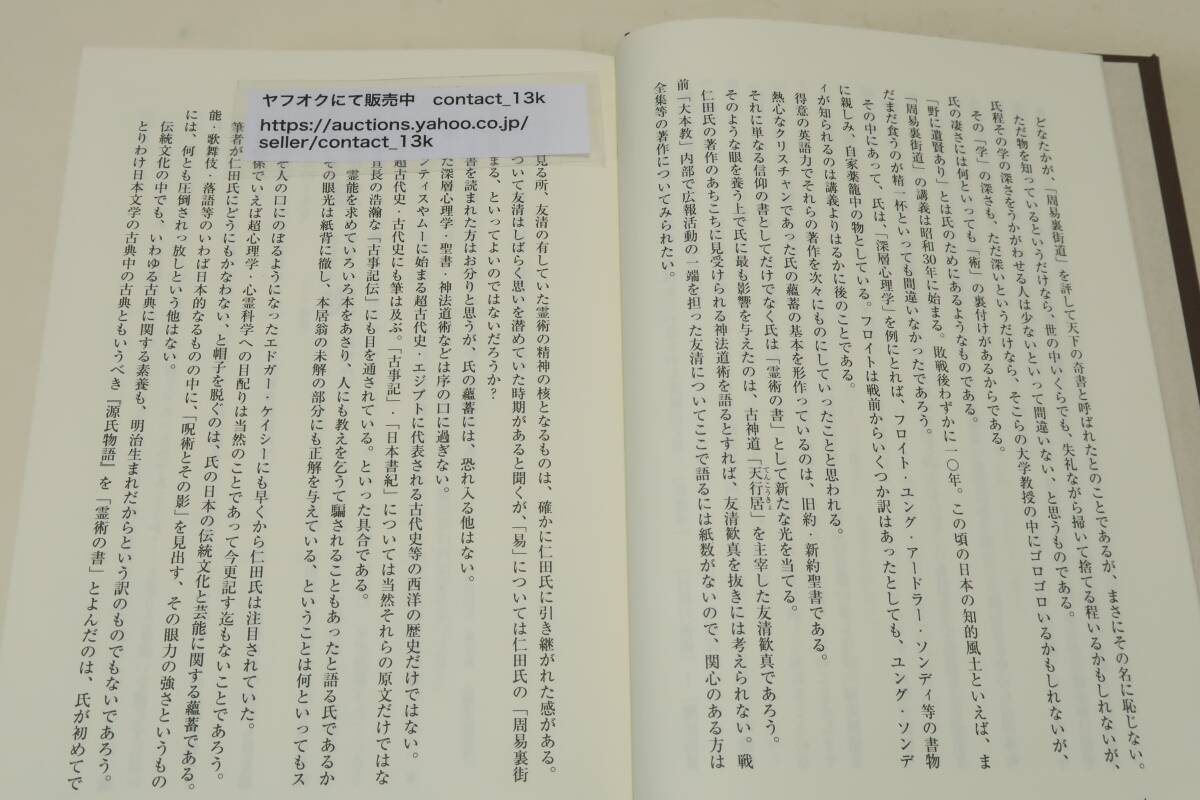 どなたかが、「周易裏街道」を評して天下の奇書と呼ばれたとのことであるが、まさにその名に恥じない。
ただ物を知っているというだけなら、世の中いくらでも、失礼ながら掃いて捨てる程いるかもしれないが、
氏程その学の深さをうかがわせる人は少ないといって間違いない、と思うものである。
その「学」の深さも、ただ深いというだけなら、そこらの大学教授の中にゴロゴロいるかもしれないが、
氏の凄さには何といっても「術」の裏付けがあるからである。
「野に遺賢あり」とは氏のためにあるようなものである。
「周易裏街道」の講義は昭和30年に始まる。敗戦後わずかに一〇年。この頃の日本の知的風土といえば、ま
だまだ食うのが精一杯といっても間違いなかったであろう。
その中にあって、氏は、「深層心理学」を例にとれば、フロイト・ユング・アードラー・ソンディ等の書物
に親しみ、自家薬籠中の物としている。フロイトは戦前からいくつか訳はあったとしても、ユング・ソンデ
ィが知られるのは講義よりはるかに後のことである。
得意の英語力でそれらの著作を次々にものにしていったことと思われる。
熱心なクリスチャンであった氏の蘊蓄の基本を形作っているのは、旧約・新約聖書である。
それに単なる信仰の書としてだけでなく氏は「霊術の書」として新たな光を当てる。
そのような眼を養う上で氏に最も影響を与えたのは、古神道「天行居」を主宰した友清歓真であろう。
てんこうきょ
仁田氏の著作のあちこちに見受けられる神法道術を語るとすれば、友清歓真を抜きには考えられない。戦
前「大本教」内部で広報活動の一端を担った友清についてここで語るには紙数がないので、関心のある方は
全集等の著作についてみられたい。
ヤフオクにて販売中 contact_13k
https://auctions.yahoo.co.jp/
seller/contact_13k
見る所、友清の有していた霊術の精神の核となるものは、確かに仁田氏に引き継がれた感がある。
ついて友清はしばらく思いを潜めていた時期があると聞くが、「易」については仁田氏の「周易裏街
まる、といってよいのではないだろうか?
書を読まれた方はお分りと思うが、氏の蘊蓄には、恐れ入る他はない。
た深層心理学・聖書・神法道術などは序の口に過ぎない。
ンティスやムーに始まる超古代史・エジプトに代表される古代史等の西洋の歴史だけではない。
超古代史・古代史にも筆は及ぶ。「古事記」・「日本書紀」については当然それらの原文だけではな
宣長の浩瀚な「古事記伝」にも目を通されている。といった具合である。
霊能を求めていろいろ本をあさり、人にも教えを乞うて騙されることもあったと語る氏であるか
その眼光は紙背に徹し、本居翁の未解の部分にも正解を与えている、ということは何といってもス
そ人の口にのぼるようになったエドガー・ケイシーにも早くから仁田氏は注目されていた。
係でいえば超心理学・心霊科学への目配りは当然のことであって今更記す迄もないことであろう。
筆者が仁田氏にどうにもかなわない、と帽子を脱ぐのは、氏の日本の伝統文化と芸能に関する蘊蓄である。
能・歌舞伎・落語等のいわば日本的なるものの中に、「呪術とその影」を見出す、その眼力の強さというもの
には、何とも圧倒されっ放しという他はない。
伝統文化の中でも、いわゆる古典に関する素養も、明治生まれだからという訳のものでもないであろう。
とりわけ日本文学の古典中の古典ともいうべき『源氏物語』を「霊術の書」とよんだのは、氏が初めてで